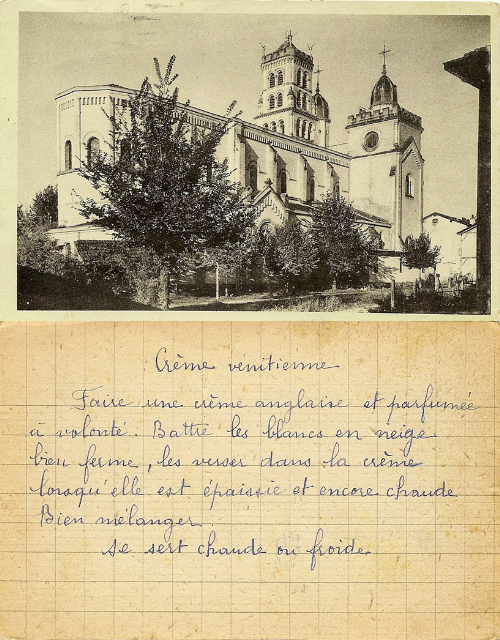 Crème vénitienne
Faire une crème anglaise et parfumée
à volonté. Battre les blancs en neige
bien ferme, les verser dans la crème
lorsqu'elle est épaissie et encore chaude
Bien mélanger.
Se sert chaude ou froide